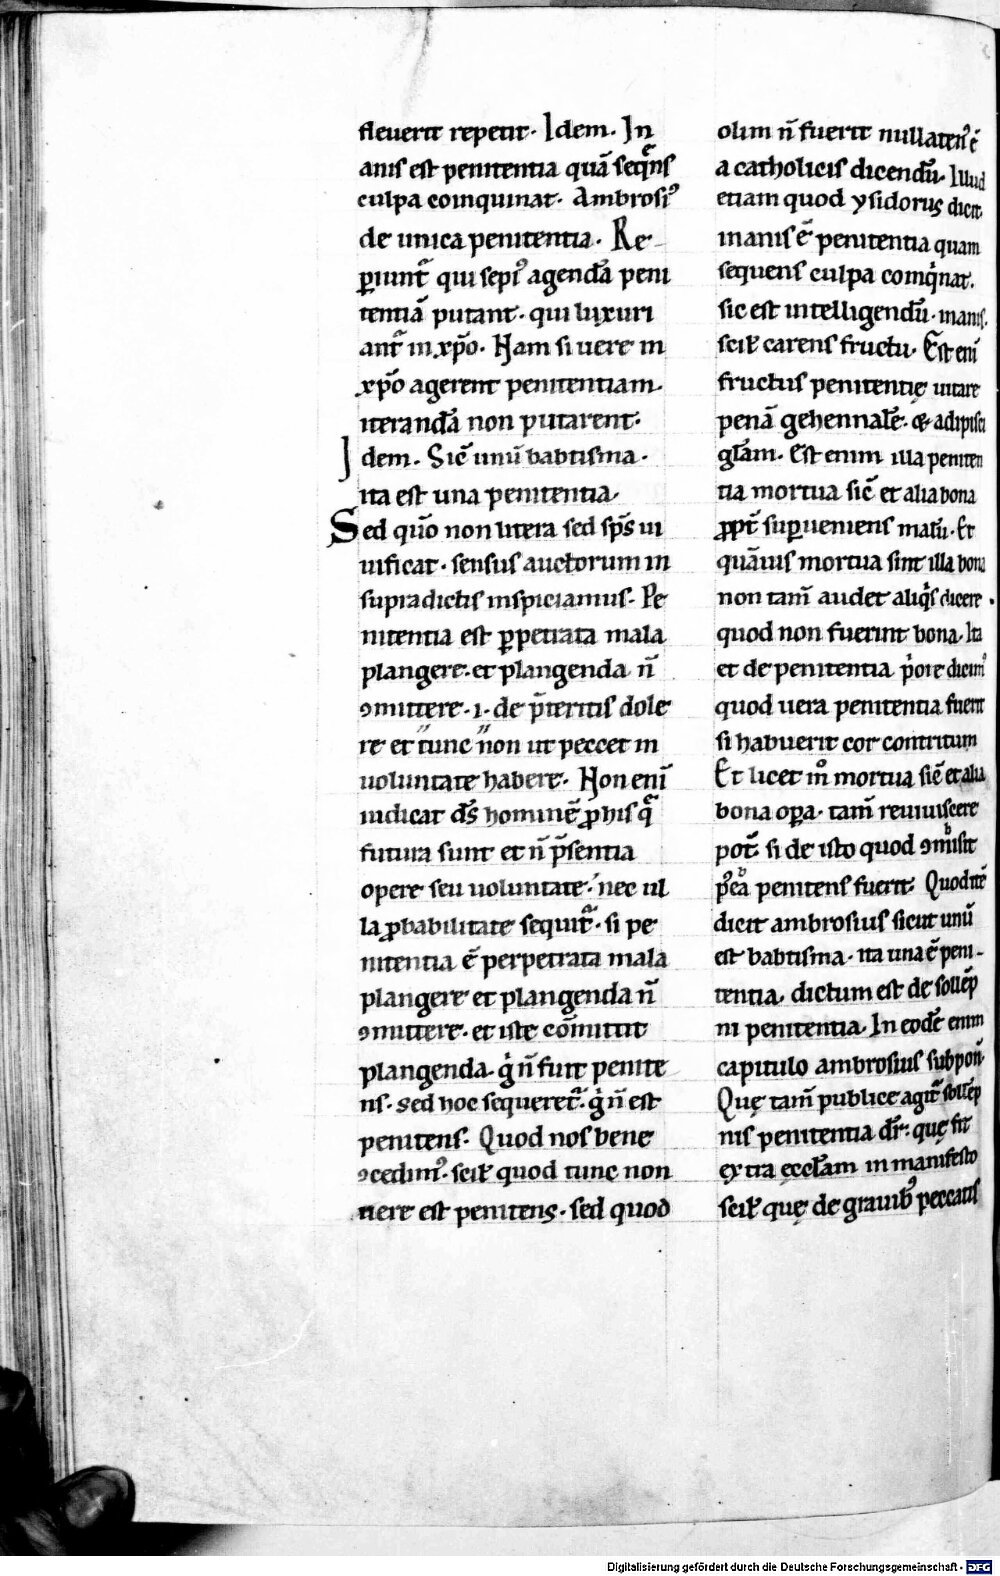 fleuerit repetit. Idem. In
anis est penitentia quā seqͣns
culpa coinquinat. Ambrosiꝰ
de unica penitentia. Re
ꝑiunt᷑ qui sepiꝰ agendā peni
tentiā putant. qui luxuri
ant᷑ in xp̄o. Nam si uere in
xp̄o agerent penitentiam.
iterandā non putarent.
Idem. Sic̄ unū babtisma.
ita est una penitentia.
Sed qūo non littera sed sp̄s ui
uificat. sensus auctorum in
supradictis inspiciamus. Pe
nitentia est ꝑpetrata mala
plangere. et plangenda n̄
ꝯmittere .i. de p̄teritis dole
re et tunc non ut peccet in
uoluntate habere. Non eni̅
iudicat ds̄ hominē ꝓ his qͣ
futura sunt et n̄ p̄sentia
opere seu uoluntate. nec ul
la ꝓbabilitate sequit᷑. si pe
nitentia ē perpetrata mala
plangere et plangenda n̄
ꝯmittere. et iste cōmittit
plangenda. gͥ n̄ fuit penite
ns. Sed hoc sequeret᷑. gͥ n̄ est
penitens. Quod nos bene
ꝯcedimꝰ. scił quod tunc non
uere est penitens. sed quod
olim n̄ fuerit nullatenꝰ ē
a catholicis dicendū. Illud
etiam quod ysidorus dicit.
inanis ē penitentia quam
sequens culpa coinqͥnat.
sic est intelligendū. inanis.
scił carens fructu. Est eni̅
fructus penitentię uitare
penā gehennalē. & adipisci
glām. Est enim illa peniten
tia mortua sic̄ et alia bona
ꝓpt᷑ suꝑueniens malū. Et
quāuis mortua sint illa bona
non tam̄ audet aliqͥs dicere.
quod non fuerint bona. Ita
et de penitentia pͥore dicimꝰ
quod uera penitentia fuerit
si habuerit cor contritum
Et licet mͦ mortua sic̄ et alia
bona oꝑa. tam̄ reuiuiscere
pot᷑. si de isto quod ꝯmisit
pꝰea penitens fuerit. Quod itē
dicit ambrosius sicut unū
est babtisma. ita una ē peni-
tentia. dictum est de sollēp
ni penitentia. In eodē enim
capitulo ambrosius subpon̄.
Quę tam̄ publice agit᷑ sollēp
nis penitentia dr̄. quę fit
extra ęccłam in manifesto
scił quę de grauibꝰ peccatis
Digitalisierung gefördert durch die Deutsche Forschungsgemeinschaft - DFG